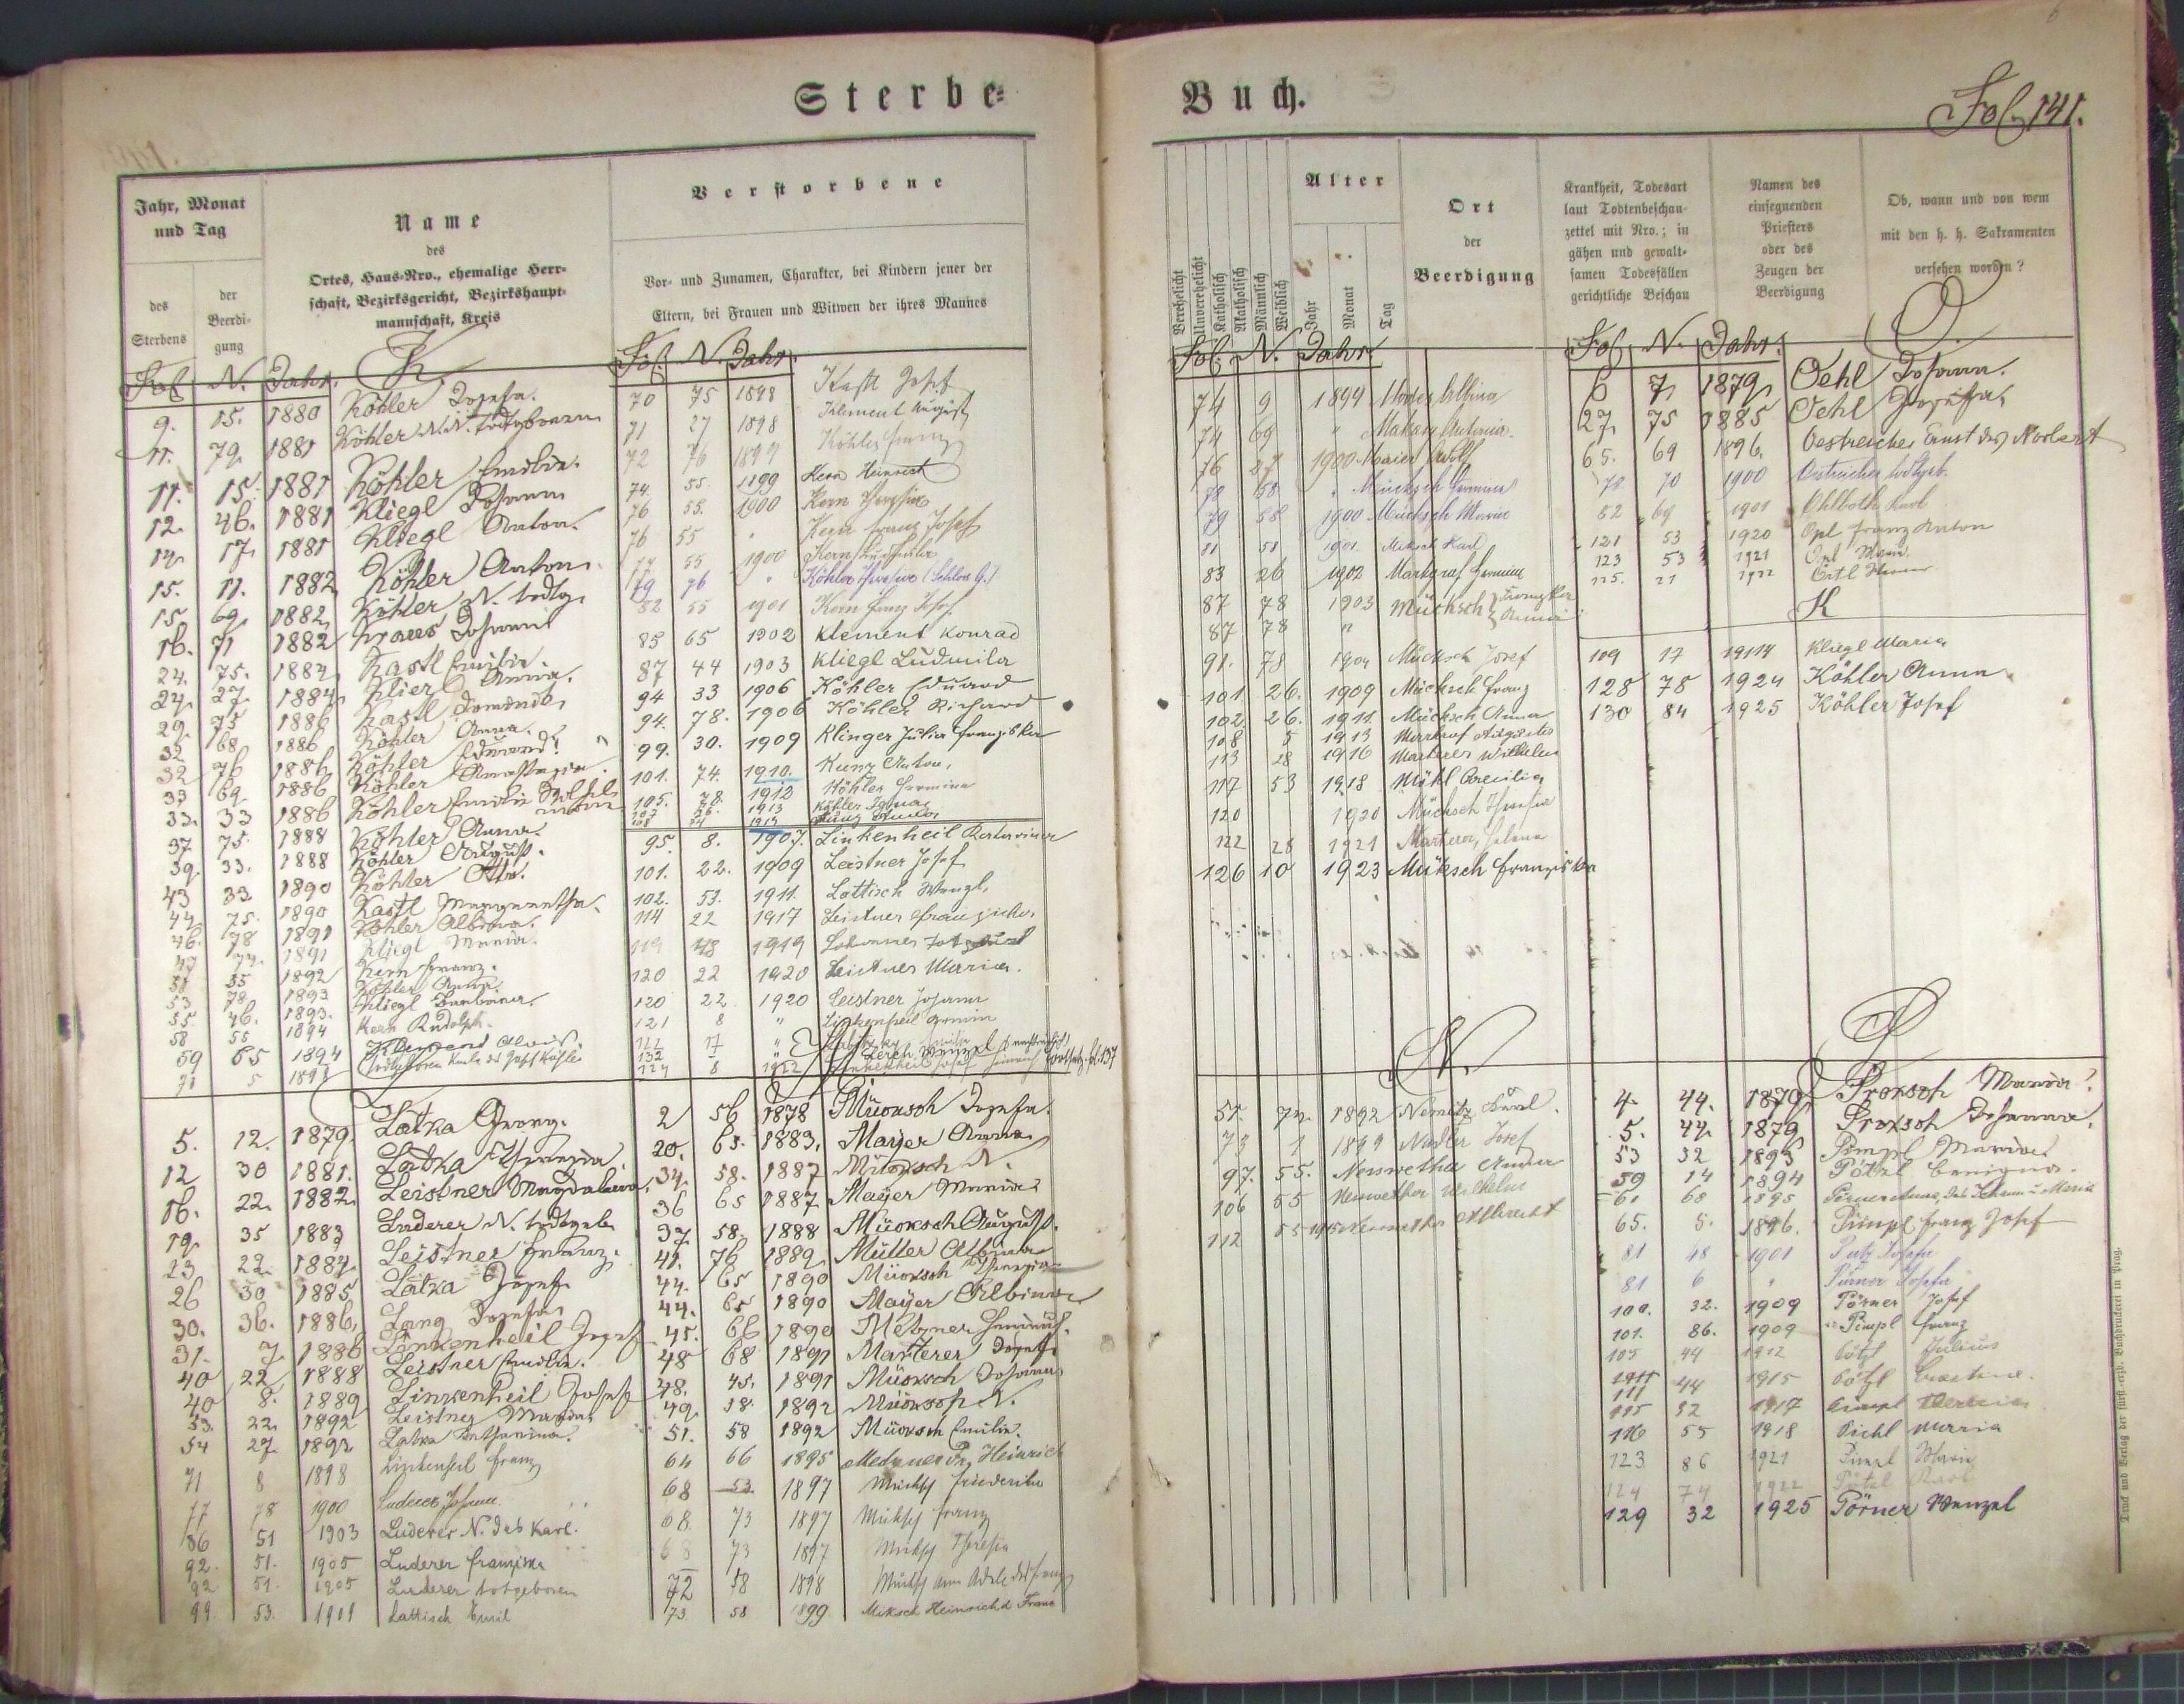 Sterbe-
Jahr, Monat und Tag
des Sterbens
der Beerdi-
gung
Name
des
Ortes, Haus-Nro., ehemalige Herr-
schaft, Bezirksgericht, Bezirkshaupt-
mannschaft, Kreis
Verstorbene
Vor- und Zunamen, Charakter, bei Kindern jener der
Eltern, bei Frauen und Witwen der ihres Mannes
Fol. N. Jahr. K
9. 15. 1880 Köhler Josefa.
11. 79. 1881 Köhler N.N.
11. 15. 1881 Köhler Emilie.
12. 46. 1881 Kliegl Johann
14. 17. 1881 Kliegl Anton.
15. 11. 1882 Köhler Anton.
15. 69. 1882 Köhler N. todtg.
16. 71 1882 Kraus Johann
24. 75. 1884 Kastl Emilie.
24. 27. 1884 Klier Anna.
29. 75 1886 Kastl
32 68 1886 Köhler Anna.
32 76 1886 Köhler Eduard
33 69 1886 Köhler Anastasia.
33. 33 1886 Köhler Emilie
37 75. 1888 Köhler Anna.
39. 33. 1888 Köhler August.
43 33 1890 Köhler Otto.
44. 75. 1890 Kastl Margaretha.
46. 78 1891 Köhler Albina.
1891 Kliegl Maria.
55 1892 Kern Franz.
53 78. 1893 Köhler Anna.
55 46. 1893. Kliegl Barbara.
58 55 1894 Kern Rudolph.
59 65 1894 Klement Alois.
71 5 1898
Fol. N. Jahr.
70 75 1898 Kastl Josef
71 27 1898 Klement August
72 76 1899 Köhler Franz
74. 55. 1899 Kern Heinrich
76 55. 1900 Kern Theresia
76 55 " Kern Franz Josef
77 55 1900 Kern
79 76 " Köhler Theresia (Schloss G.)
82 55 1901 Kern Franz Josef
85 65 1902 Klement Konrad
87 44 1903 Kliegl Ludmila
94 33 1906 Köhler Eduard
94. 78. 1906 Köhler Richard
99. 30. 1909 Klinger Julia Franziska
101. 74. 1910. Kunz Anton,
105. 78. 1912 Köhler Hermine
107 26. 1913 Köhler Ignaz
108 74 1913 Kunz
95. 8. 1907. Linkenheil Katharina
101. 22. 1909 Leistner Josef
102. 53. 1911. Lattisch Wenzl.
114 22 1917 Leistner Franziska.
119 48 1919
120 22 1920 Leistner Maria.
120 22 1920 Leistner Johann
121 8 " Linkenheil Armin
122 17 "
132 Lerch Wenzel
124 8 1922 Linkenheil Josef Fortsetz. fol. 137
5. 12. 1879. Latka Georg.
12 30 1881. Latka Theresia.
16. 22. 1882. Leistner Magdalena.
19. 35 1883 Luderer N. todtgeb.
23 22. 1884. Leistner Franz.
26 30 1885 Latka Josef.
30. 36. 1886, Lang Josefa
31. 7 1886 Linkenheil Josef
40 22 1888 Leistner Emilie.
40 8. 1889 Linkenheil Josef
53. 22. 1892 Leistner Maria
54 27 1892 Latka Katharina.
71 8 1898 Linkenheil Franz
77 78 1900 Luderer Johann.
86 51 1903 Luderer N. des Karl.
92. 51. 1905 Luderer Franziska
92 51. 1905 Luderer totgeboren
99. 53. 1909 Lattisch Emil
2 56 1878 Mücksch Josefa.
20. 65. 1883, Mayer Anna
34. 58. 1887 Mücksch N.
36 65 1887 Mayer Maria
37 58. 1888 Mücksch August.
41. 76 1889 Müller Albina
44. 65 1890 Mücksch Theresia
44. 65 1890 Mayer Albina
45. 66 1890 Metzner Heinrich.
48 68 1891 Marterer Josef
48. 45. 1891 Mücksch Johanna
49. 58. 1892 Mücksch N.
51. 58 1892 Mücksch Emilie.
64 66 1895 Metzner Heinrich
68 53 1897 Mücksch Friederike
68. 73 1897 Mücksch Franz
68 73 1897 Mücksch Theresia
72 58 1898 Mücksch
73. 58 1899 Miksch Heinrich d. Franz
Buch.
Fol. 141.
Verehelicht
Unverehelicht
Katholisch
Akatholisch
Männlich
Weiblich
Alter
Jahr
Monat
Tag
Ort
der
Beerdigung
Krankheit, Todesart
laut Todtenbeschau-
zettel mit Nro.; in
gähen und gewalt-
samen Todesfällen
gerichtliche Beschau
Namen des
einsegnenden
Priesters
oder des
Zeugen der
Beerdigung
Ob, wann und von wem
mit den h. h. Sakramenten
versehen worden?
Fol. N. Jahr
74 9 1899 Albina
74 69 " Antonia.
76 27 1900 Maier Adolf
78 58 " Mücksch Hermine
79 58 1900 Mücksch Maria
81 51 1901. Miksch Karl
83 26 1902 Markgraf Hermine
87 78 1903 Mücksch Franziska
87 78 " Anna
91. 78 1904 Mücksch Josef
101 26. 1909 Mücksch Franz
102 26. 1911. Mücksch Anna
108 5 1913 Markgraf
113 28 1916 Marterer Wilhelm
117 53 1918 Mökl
120 1920 Mücksch Theresia
122 28 1921 Marterer, Helene
126 10 1923 Müksch Franziska
N.
51. 74. 1892 Nemitz Karl.
73 1 1899 Nadler Josef
97. 55. Neuwether Anna
106 55 Neuwether Wilhelm
112 55 1915 Albrecht
Fol. N. Jahr. O.
6 7. 1879. Oehl Johann.
27. 75 1885 Oehl Josefa
65. 69 1896. Oestreicher Ernst des Norbert
78 70 1900 Oestreicher todtgeb.
82 69 1901 Karl
121 53 1920 Opl Franz Anton
123 53 1921 Opl Marie
125. 21 1922 Örtl
K
109 17 1914 Kliegl Maria
128 78 1924 Köhler Anna
130 84 1925 Köhler Josef
P
4. 44. 1879 Proksch Maria.
5. 44. 1879 Proksch Johanna.
53 32 1893 Pimpl Maria
59 14 1894 Pötzl Benigna.
61 68 1895
65. 5. 1896. Pimpl Franz Josef
81 48 1901 Putz Josefa
81 6 " Pürner Josefa
100. 32. 1909 Pörner Josef
101. 86. 1909 Pimpl Franz
105 44 1912 Pötzl Julius
111 44 1915 Pötzl
115 32 1917
116 55 1918 Pichl Maria
123 86 1921 Pimpl Marie
124 74 1922 Pötzl
129 32 1925 Pörner Wenzel
Druck und Verlag der fürst-erzb. Buchdruckerei in Prag.